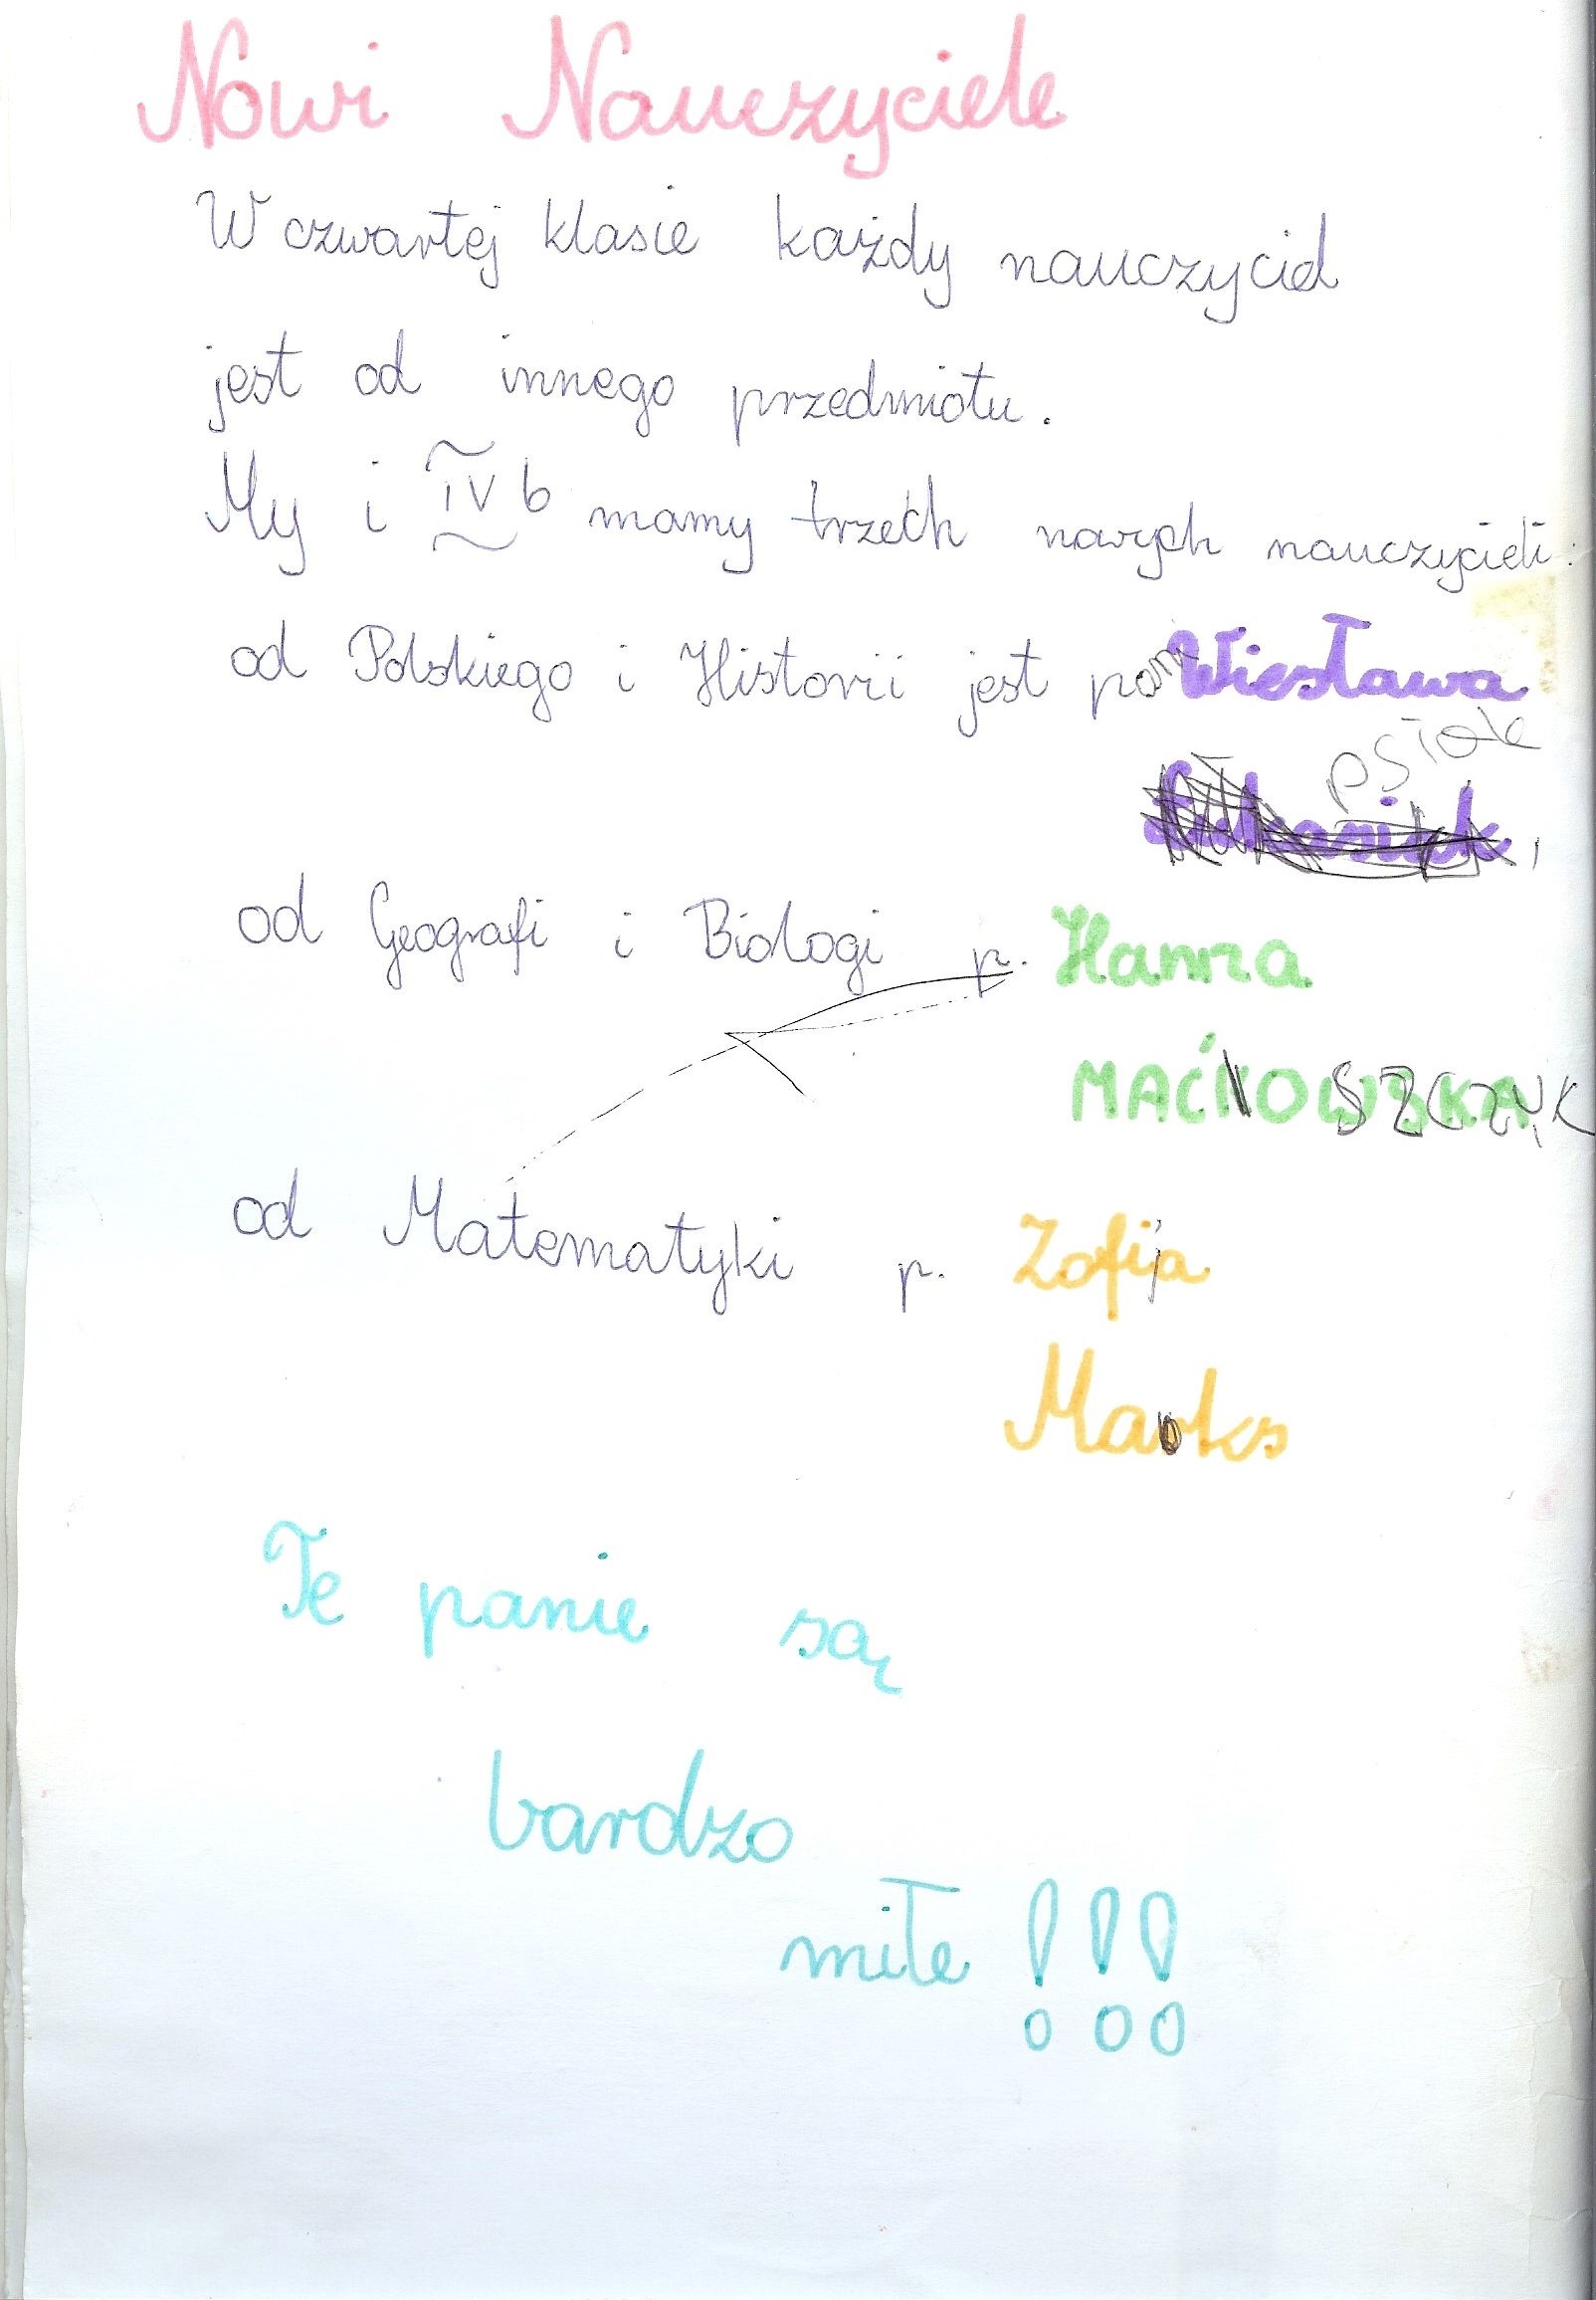 Nowi Nauczyciele
W czwartej klasie każdy nauczyciel
jest od innego przedmiotu.
My i IV b mamy trzech nowych nauczycieli:
od Polskiego i Historii jest pani Wiesława
psiak
,
od Geografi i Biologi p. Hanna
MAĆKOWSKA SZCZYK
od Matematyki p. Zofija
Marks
Te panie są
bardzo
miłe !!!